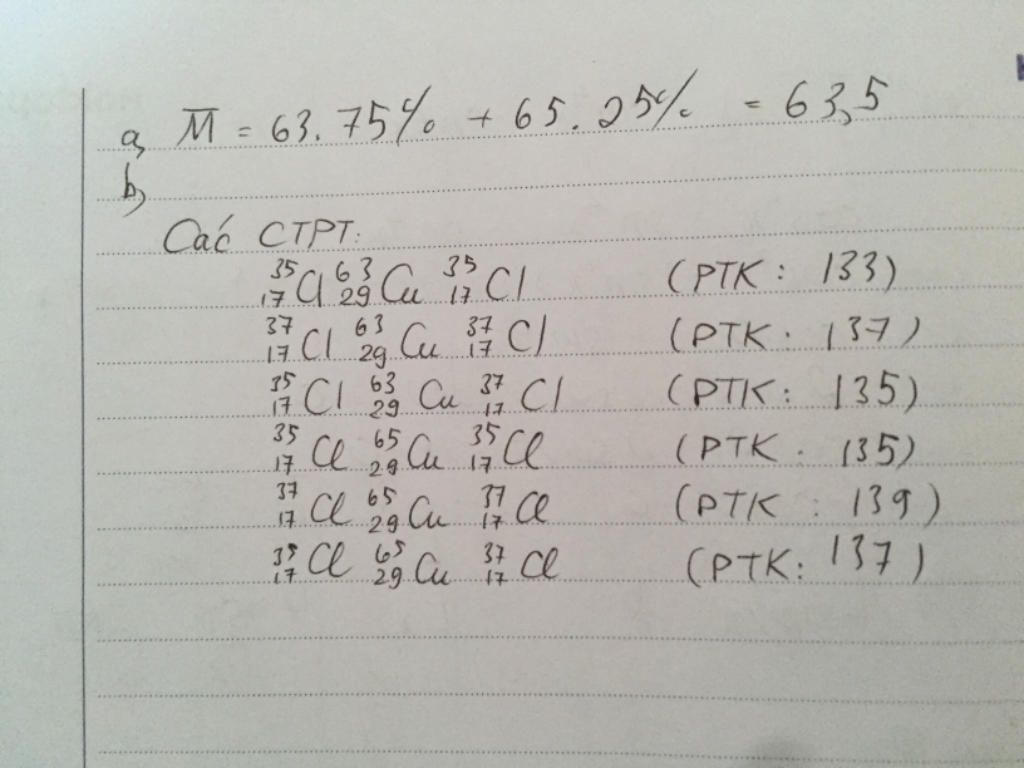 a, M̅ = 63.75% + 65.25% = 63,5
b,
Các CTPT:
³⁵₁₇Cl ⁶³₂₉Cu ³⁵₁₇Cl (PTK: 133)
³⁷₁₇Cl ⁶³₂₉Cu ³⁷₁₇Cl (PTK: 137)
³⁵₁₇Cl ⁶³₂₉Cu ³⁷₁₇Cl (PTK: 135)
³⁵₁₇Cl ⁶⁵₂₉Cu ³⁵₁₇Cl (PTK: 135)
³⁷₁₇Cl ⁶⁵₂₉Cu ³⁷₁₇Cl (PTK: 139)
³⁵₁₇Cl ⁶⁵₂₉Cu ³⁷₁₇Cl (PTK: 137)